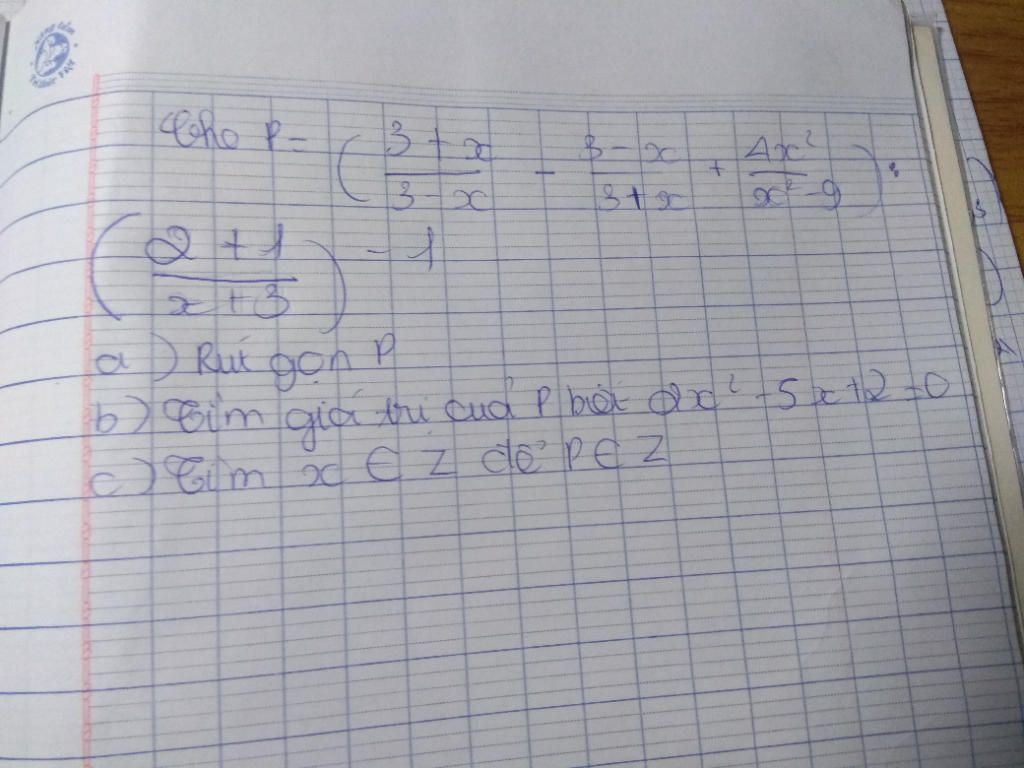 Cho P = ( (3 + x)/(3 - x) - (3 - x)/(3 + x) + 4x²/(x² - 9) ) :
( (2 + 1)/(x + 3) ) - 1
a) Rút gọn P
b) Tìm giá trị của P biết 2x² - 5x + 2 = 0
c) Tìm x ∈ Z để P ∈ Z